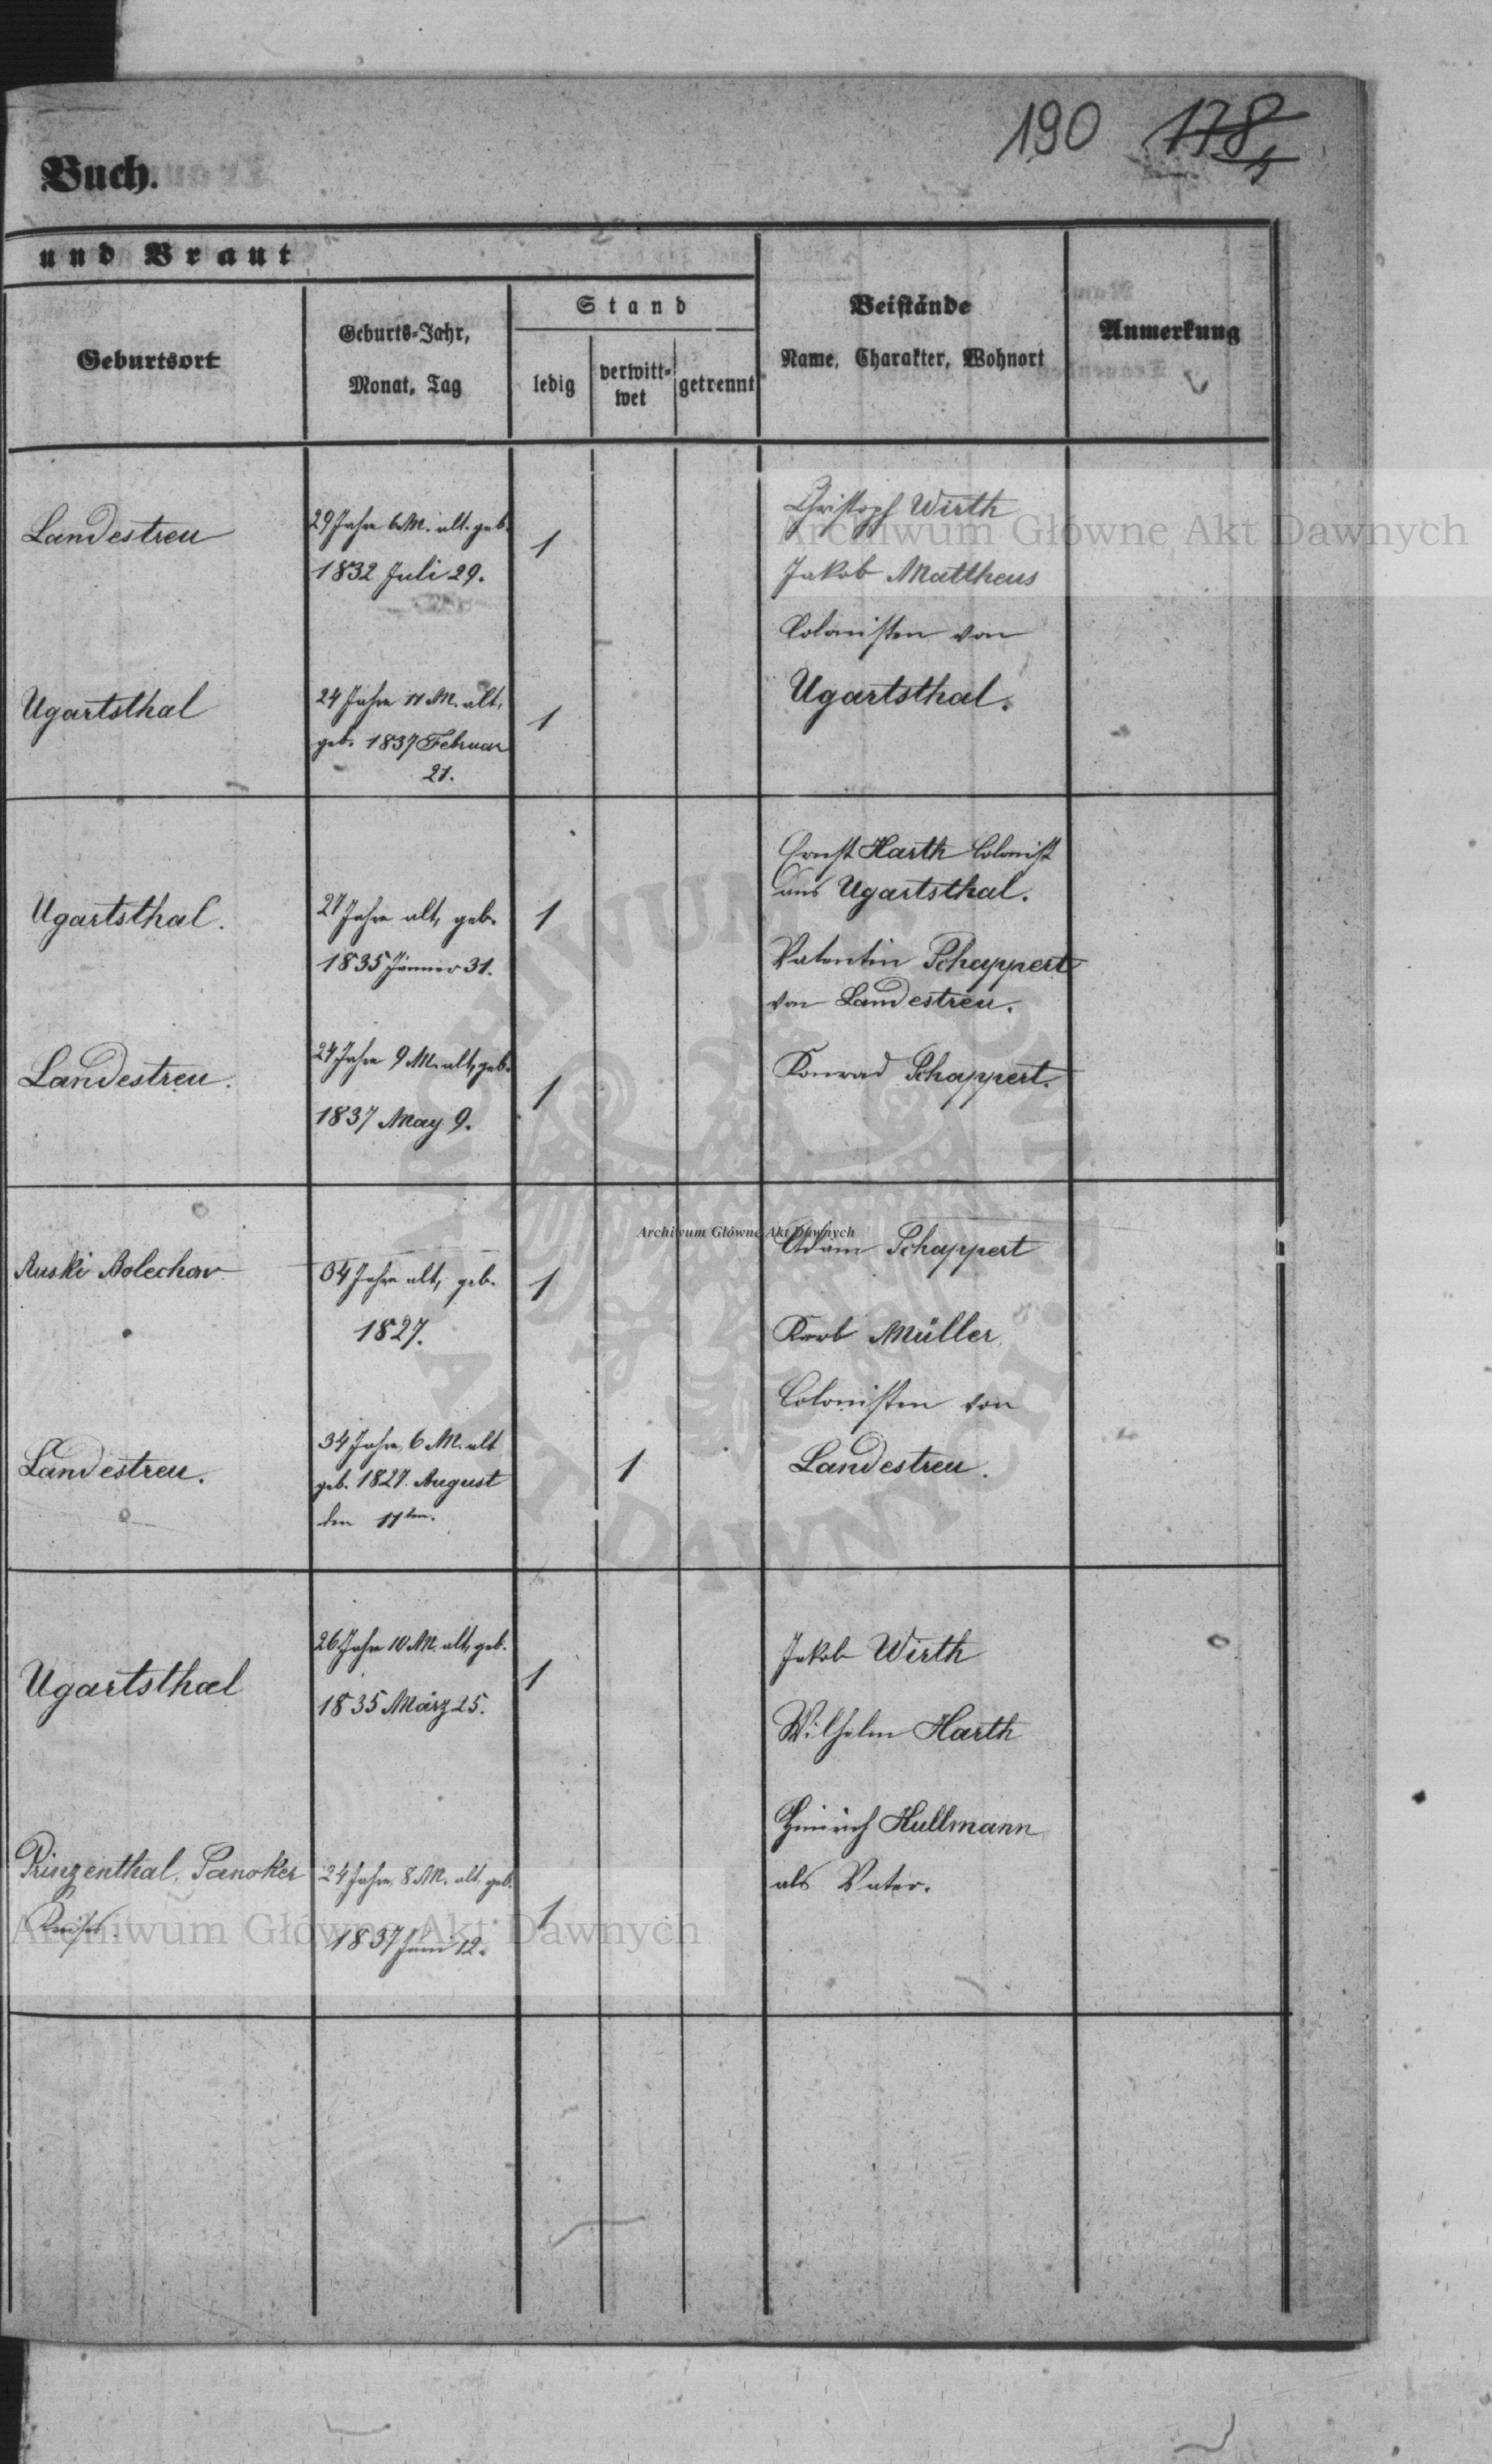 190 178
4
Buch.
und Braut
Geburtsort
Geburts-Jahr,
Monat, Tag
Stand
ledig
verwitt-
wet
getrennt
Beistände
Name, Charakter, Wohnort
Anmerkung
Landestreu
29 Jahre 6 M. alt. geb.
1832 Juli 29.
1
Christoph Wirth
Jakob Mattheus
Colonisten von
Ugartsthal.
Ugartsthal
24 Jahre 11 M. alt,
geb. 1837 Februar
21.
1
Ugartsthal.
27 Jahre alt, geb.
1835 Jänner 31.
1
Ernst Harth Colonist
aus Ugartsthal.
Valentin Schappert
von Landestreu.
Konrad Schappert.
Landestreu.
24 Jahre 9 M. alt, geb.
1837 May 9.
1
Ruski Bolechow
34 Jahre alt, geb.
1827.
1
Adam Schappert
Karb Müller,
Colonisten von
Landestreu.
Landestreu.
34 Jahre, 6 M. alt
geb. 1827. August
den 11ten.
1
Ugartsthal
26 Jahre 10 M. alt, geb.
1835 März 25.
1
Jakob Wirth
Wilhelm Harth
Heinrich Hullmann
als Vater.
Prinzenthal, Sanoker
Kreises.
24 Jahre, 8 M. alt, geb.
1837 Juni 12.
1
Archiwum Główne Akt Dawnych
Archiwum Główne Akt Dawnych
Archiwum Główne Akt Dawnych